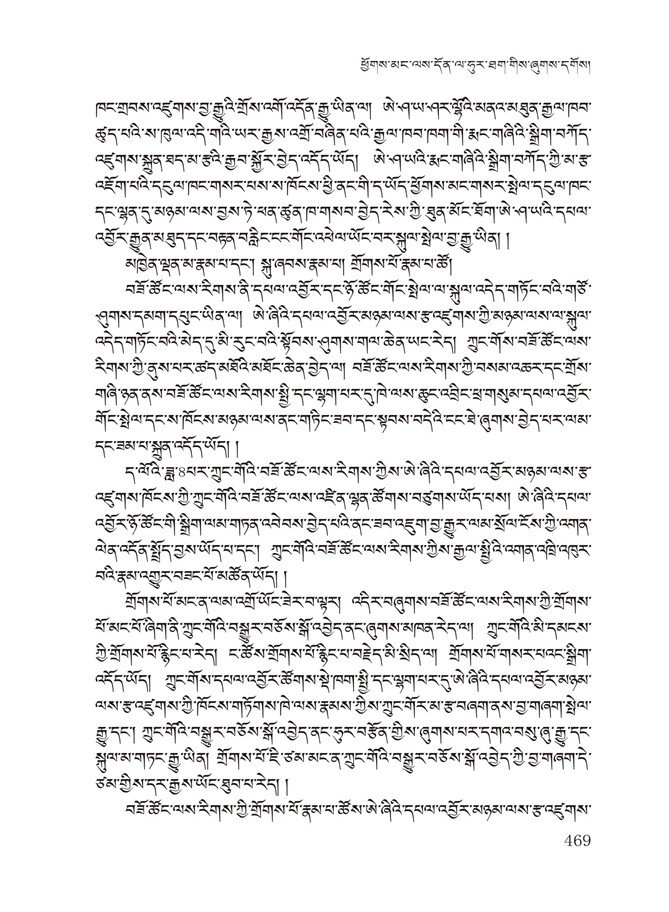 ཕྱོགས་མང་ལས་དོན་ལ་ཧུར་ཐག་གིས་ཞུགས་དགོས།
ཁབ་གྲབས་འཛུགས་བྱ་རྒྱུའི་གྲོས་འགོ་འདོན་རྒྱུ་ཡིན་ལ། ཨེ་ཤ་ཡ་ཤར་ལྷོའི་མནའ་མཐུན་རྒྱལ་ཁབ་
ཚུད་པའི་ས་ཁུལ་འདི་གའི་ཡར་རྒྱས་འགྲོ་བཞིན་པའི་རྒྱལ་ཁབ་ཁག་གི་རྨང་གཞིའི་སྒྲིག་བཀོད་
འཛུགས་སྐྲུན་ཐད་མ་རྩའི་རྒྱབ་སྐྱོར་བྱེད་འདོད་ཡོད། ཨེ་ཤ་ཡའི་རྨང་གཞིའི་སྒྲིག་བཀོད་ཀྱི་མ་རྩ་
འཇོག་པའི་དངུལ་ཁང་གསར་པས་ས་ཁོངས་ཕྱི་ནང་གི་ད་ཡོད་ཕྱོགས་མང་གསར་སྤེལ་དངུལ་ཁང་
དང་ལྷན་དུ་མཉམ་ལས་བྱས་ཏེ་ཕན་ཚུན་ཁ་གསབ་བྱེད་རེས་ཀྱི་ཐུན་མོང་ཐོག་ཨེ་ཤ་ཡའི་དཔལ་
འབྱོར་རྒྱུན་མཐུད་དང་བརྟན་བརླིང་ངང་གོང་འཕེལ་ཡོང་བར་སྐུལ་སྤེལ་བྱ་རྒྱུ་ཡིན། །
མཁྱེན་ལྡན་མ་རྣམ་པ་དང༌། སྐུ་ཞབས་རྣམ་པ། གྲོགས་པོ་རྣམ་པ་ཚོ།
བཟོ་ཚོང་ལས་རིགས་ནི་དཔལ་འབྱོར་དང་ཉོ་ཚོང་གོང་སྤེལ་ལ་སྐུལ་འདེད་གཏོང་བའི་གཙོ་
ཤུགས་དམག་དཔུང་ཡིན་ལ། ཨེ་ཞིའི་དཔལ་འབྱོར་མཉམ་ལས་རྩ་འཛུགས་ཀྱི་མཉམ་ལས་ལ་སྐུལ་
འདེད་གཏོང་བའི་མེད་དུ་མི་རུང་བའི་སྟོབས་ཤུགས་གལ་ཆེན་ཡང་རེད། ཀྲུང་གོས་བཟོ་ཚོང་ལས་
རིགས་ཀྱི་ནུས་པར་ཚད་མཐོའི་མཐོང་ཆེན་བྱེད་ལ། བཟོ་ཚོང་ལས་རིགས་ཀྱི་བསམ་འཆར་དང་གྲོས་
གཞི་ཉན་ནས་བཟོ་ཚོང་ལས་རིགས་སྤྱི་དང་ལྷག་པར་དུ་ཁེ་ལས་ཆུང་འབྲིང་ཕྲ་གསུམ་དཔལ་འབྱོར་
གོང་སྤེལ་དང་ས་ཁོངས་མཉམ་ལས་ནང་གཏིང་ཟབ་དང་སྟབས་བདེའི་ངང་ཐེ་ཞུགས་བྱེད་པར་ལམ་
དང་ཟམ་པ་སྐྲུན་འདོད་ཡོད། །
ད་ལོའི་ཟླ་༨པར་ཀྲུང་གོའི་བཟོ་ཚོང་ལས་རིགས་ཀྱིས་ཨེ་ཞིའི་དཔལ་འབྱོར་མཉམ་ལས་རྩ་
འཛུགས་ཁོངས་ཀྱི་ཀྲུང་གོའི་བཟོ་ཚོང་ལས་འཛིན་ལྷན་ཚོགས་བཙུགས་ཡོད་པས། ཨེ་ཞིའི་དཔལ་
འབྱོར་ཉོ་ཚོང་གི་སྒྲིག་ལམ་གཏན་འབེབས་བྱེད་པའི་ནང་ཟབ་འཇུག་བྱ་རྒྱུར་ལམ་སྲོལ་ངོས་ཀྱི་འགན་
ལེན་འདོན་སྤྲོད་བྱས་ཡོད་པ་དང༌། ཀྲུང་གོའི་བཟོ་ཚོང་ལས་རིགས་ཀྱིས་རྒྱལ་སྤྱིའི་འགན་འཁྲི་འཁུར་
བའི་རྣམ་འགྱུར་བཟང་པོ་མཚོན་ཡོད། །
གྲོགས་པོ་མང་ན་ལམ་འགྲོ་ཡོང་ཟེར་བ་ལྟར། འདིར་བཞུགས་བཟོ་ཚོང་ལས་རིགས་ཀྱི་གྲོགས་
པོ་མང་པོ་ཞིག་ནི་ཀྲུང་གོའི་བསྒྱུར་བཅོས་སྒོ་འབྱེད་ནང་ཞུགས་མཁན་རེད་ལ། ཀྲུང་གོའི་མི་དམངས་
ཀྱི་གྲོགས་པོ་རྙིང་པ་རེད། ང་ཚོས་གྲོགས་པོ་རྙིང་པ་བརྗེད་མི་སྲིད་ལ། གྲོགས་པོ་གསར་པའང་སྒྲིག་
འདོད་ཡོད། ཀྲུང་གོས་དཔལ་འབྱོར་ཚོགས་སྡེ་ཁག་སྤྱི་དང་ལྷག་པར་དུ་ཨེ་ཞིའི་དཔལ་འབྱོར་མཉམ་
ལས་རྩ་འཛུགས་ཀྱི་ཁོངས་གཏོགས་ཁེ་ལས་རྣམས་ཀྱིས་ཀྲུང་གོར་མ་རྩ་བཞག་ནས་བྱ་གཞག་སྤེལ་
རྒྱུ་དང༌། ཀྲུང་གོའི་བསྒྱུར་བཅོས་སྒོ་འབྱེད་ནང་ཧུར་བརྩོན་གྱིས་ཞུགས་པར་དགའ་བསུ་ཞུ་རྒྱུ་དང་
སྐུལ་མ་གཏང་རྒྱུ་ཡིན། གྲོགས་པོ་ཇི་ཙམ་མང་ན་ཀྲུང་གོའི་བསྒྱུར་བཅོས་སྒོ་འབྱེད་ཀྱི་བྱ་གཞག་དེ་
ཙམ་གྱིས་དར་རྒྱས་ཡོང་ཐུབ་པ་རེད། །
བཟོ་ཚོང་ལས་རིགས་ཀྱི་གྲོགས་པོ་རྣམ་པ་ཚོས་ཨེ་ཞིའི་དཔལ་འབྱོར་མཉམ་ལས་རྩ་འཛུགས་
469